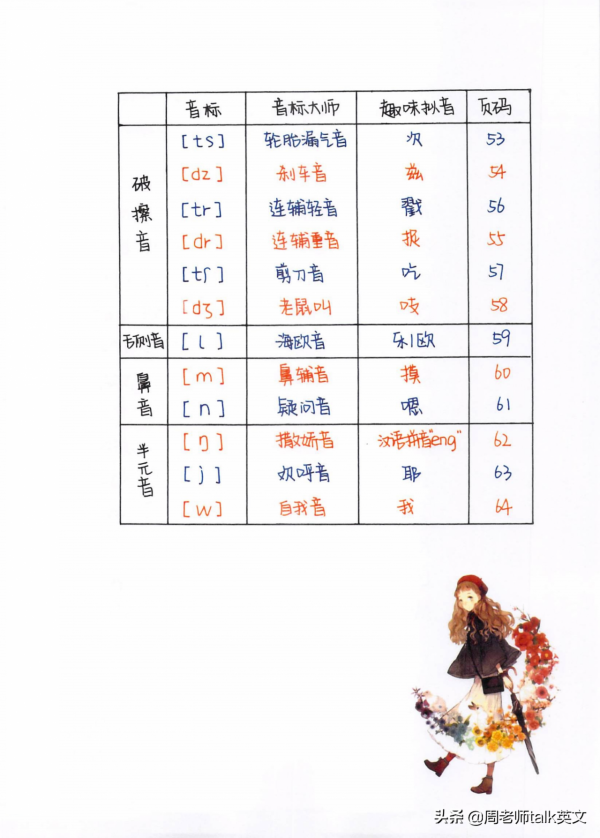 音标 音标大师 趣味拟音 页码
破擦音
[ts] 轮胎漏气音 次 53
[dz] 刹车音 兹 54
[tr] 连辅轻音 戳 56
[dr] 连辅重音 捉 55
[tʃ] 剪刀音 吃 57
[dʒ] 老鼠叫 吱 58
舌侧音 [l] 海欧音 乐l欧 59
鼻音
[m] 鼻辅音 摸 60
[n] 疑问音 嗯 61
半元音
[ŋ] 撒娇音 汉语拼音"eng" 62
[j] 欢呼音 耶 63
[w] 自我音 我 64
头条 @周老师talk英文